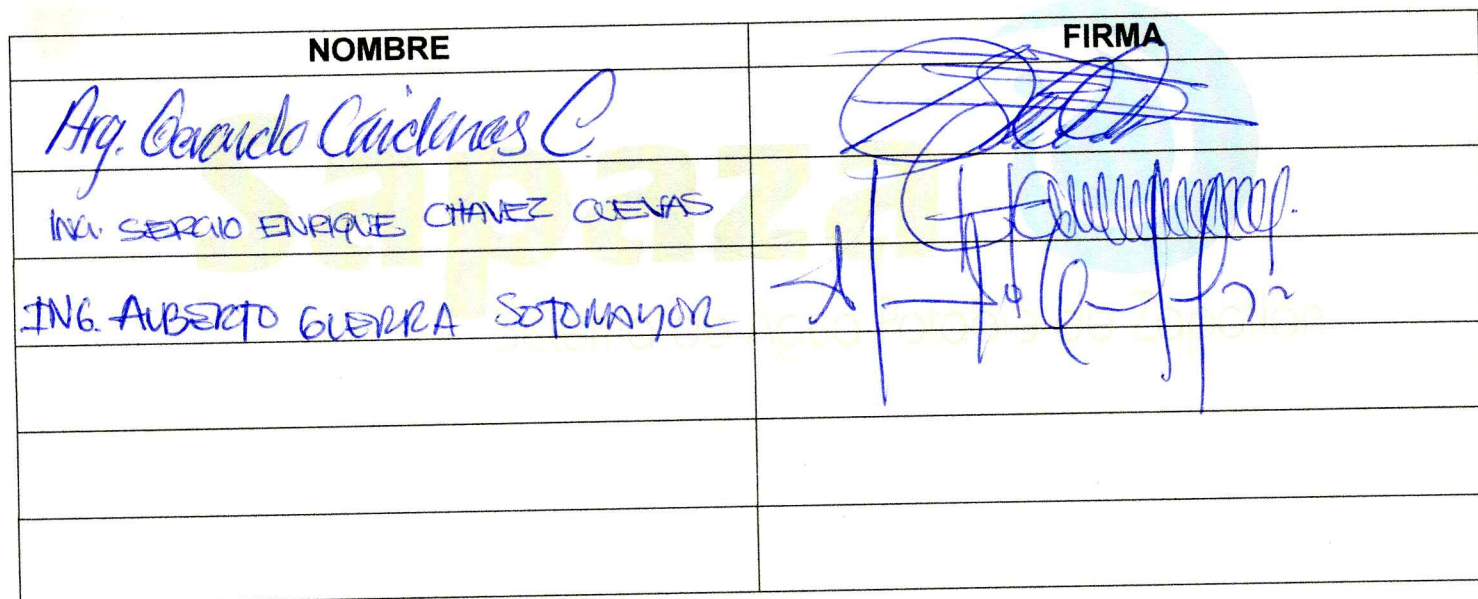 NOMBRE FIRMA
Arq. Gerardo Cárdenas C.
ING. SERGIO ENRIQUE CHAVEZ CUEVAS
ING. ALBERTO GUERRA SOTOMAYOR
sapazа